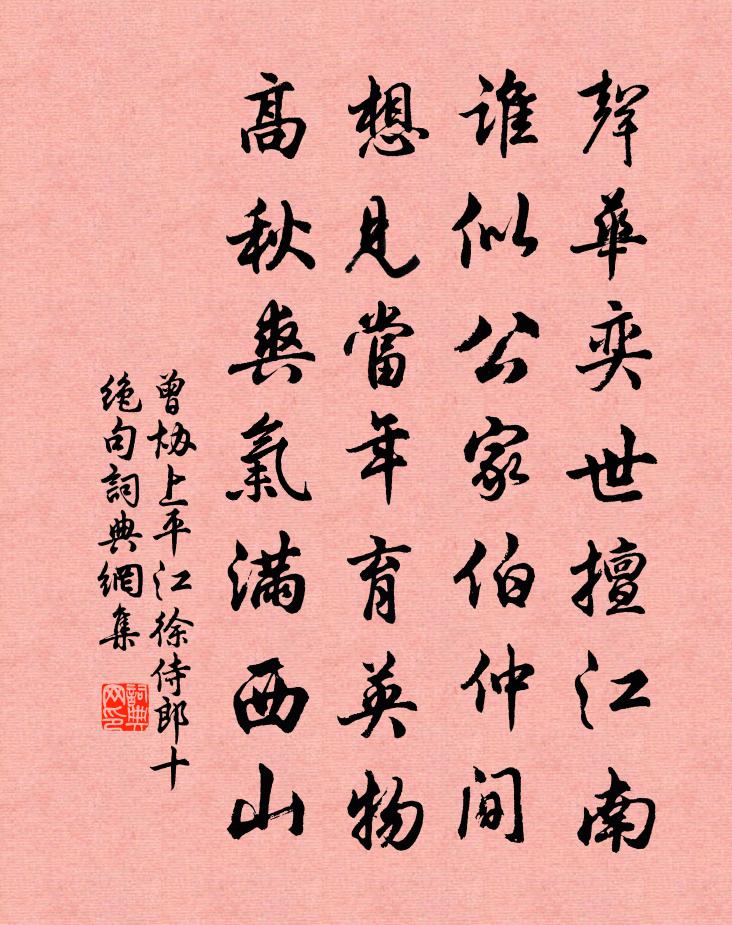 聲華奕世擅江南
誰似公家伯仲間
想見當年育英物
高秋爽氣滿西山
曾協上平江徐侍郎十
絕句詞典網集
詞典网印